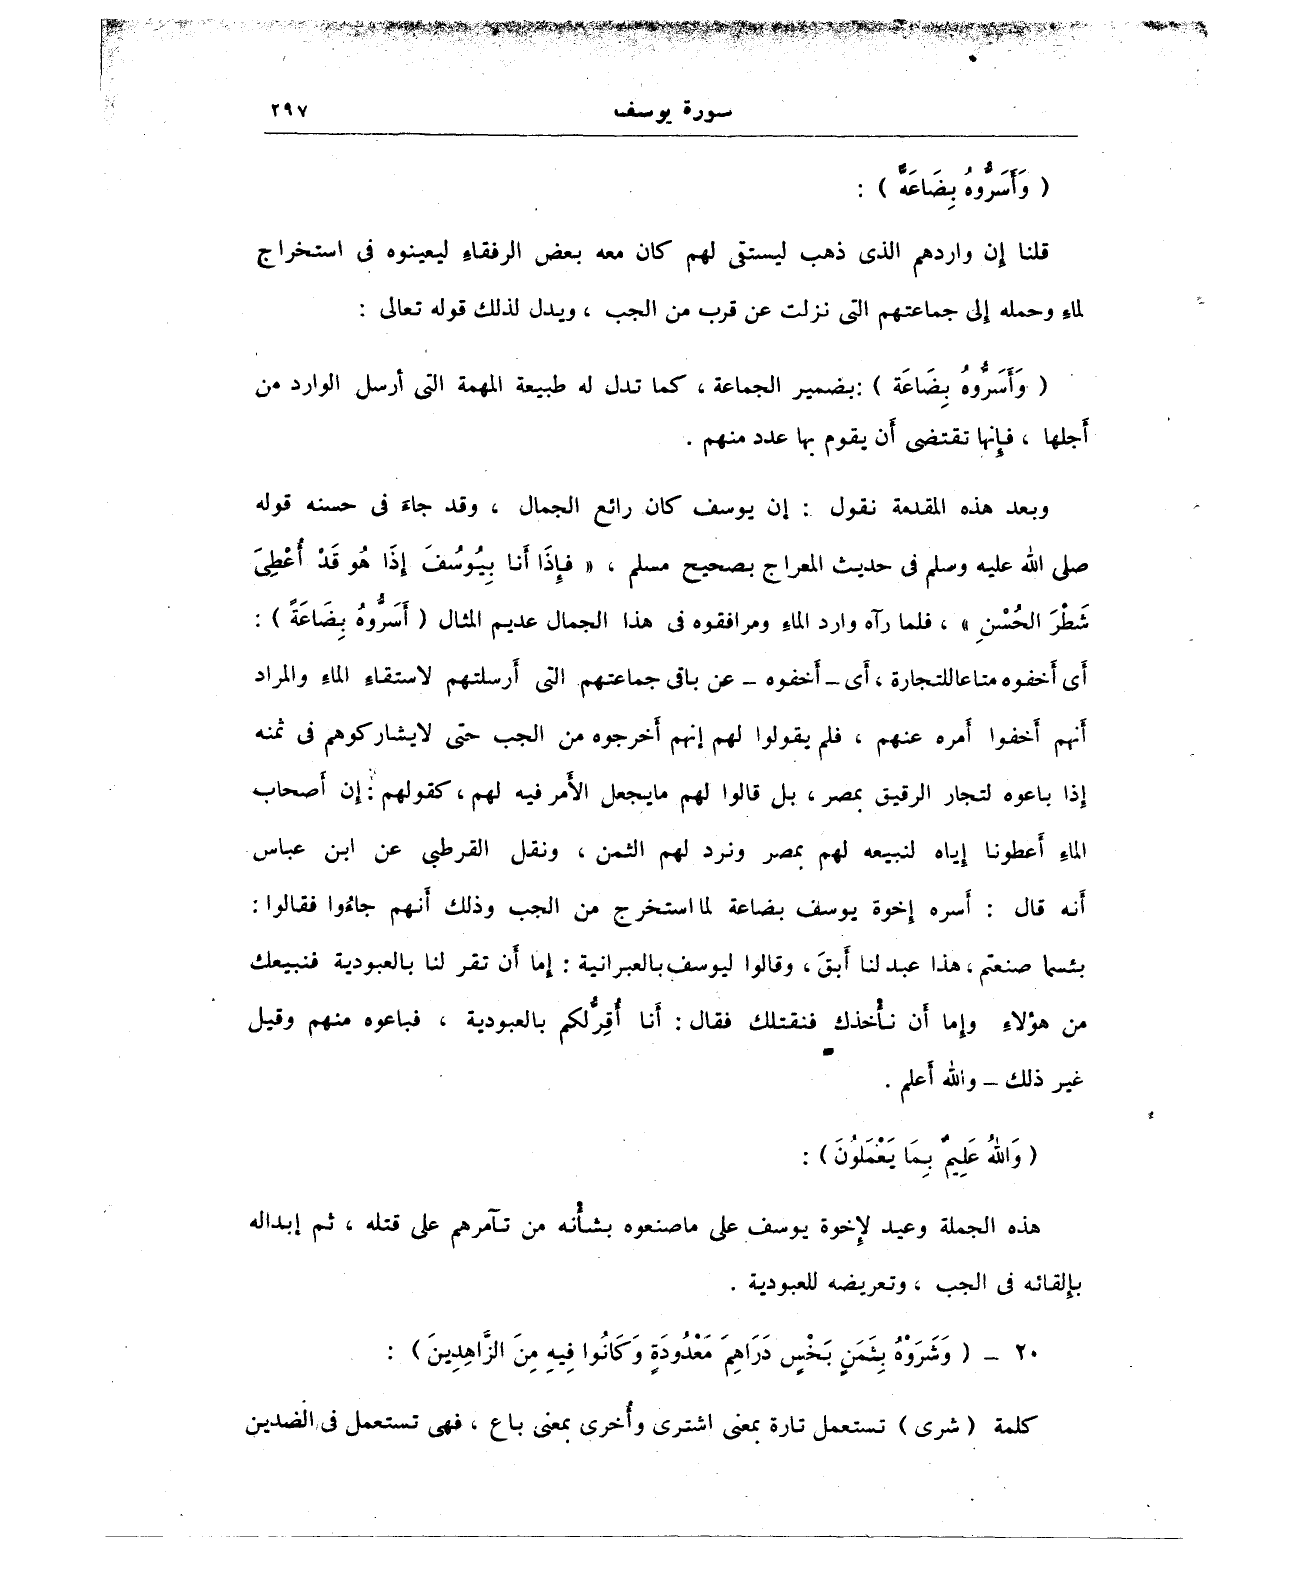 سورة يوسف ٢٩٧
( وَأَسَرُّوهُ بِضَاعَةً ) :
قلنا إن واردهم الذى ذهب ليستقى لهم كان معه بعض الرفقاء ليعينوه فى استخراج
لماء وحمله إلى جماعتهم التى نزلت عن قرب من الجب ، ويدل لذلك قوله تعالى :
( وَأَسَرُّوهُ بِضَاعَة ) :بضمير الجماعة ، كما تدل له طبيعة المهمة التى أرسل الوارد من
أجلها ، فإنها تقتضى أن يقوم بها عدد منهم .
وبعد هذه المقدمة نقول : إن يوسف كان رائع الجمال ، وقد جاء فى حسنه قوله
صلى الله عليه وسلم فى حديث المعراج بصحيح مسلم ، « فَإِذَا أنا بِيُوسُفَ إِذَا هُو قَدْ أُعْطِىَ
شَطْرَ الحُسْنِ » ، فلما رآه وارد الماء ومرافقوه فى هذا الجمال عديم المثال ( أَسَرُّوهُ بِضَاعَةً ) :
أى أخفوه متاعا للتجارة ، أى ــ أخفوه ــ عن باقى جماعتهم التى أرسلتهم لاستقاء الماء والمراد
أنهم أخفوا أمره عنهم ، فلم يقولوا لهم إنهم أخرجوه من الجب حتى لايشاركوهم فى ثمنه
إذا باعوه لتجار الرقيق بمصر ، بل قالوا لهم مايجعل الأمر فيه لهم ، كقولهم : إن أصحاب
الماء أعطونا إياه لنبيعه لهم بمصر ونرد لهم الثمن ، ونقل القرطبى عن ابن عباس
أنه قال : أسره إخوة يوسف بضاعة لما استخرج من الجب وذلك أنهم جاءُوا فقالوا :
بئسما صنعتم ، هذا عبد لنا أبقَ ، وقالوا ليوسف بالعبرانية : إما أن تقر لنا بالعبودية فنبيعك
من هؤلاء وإما أن نأْخذك فنقتلك فقال : أنا أُقِرُّ لكم بالعبودية ، فباعوه منهم وقيل
غير ذلك ــ والله أعلم .
( وَاللهُ عَلِيمٌ بِمَا يَعْمَلُونَ ) :
هذه الجملة وعيد لإخوة يوسف على ماصنعوه بشأْنه من تآمرهم على قتله ، ثم إبداله
بإلقائه فى الجب ، وتعريضه للعبودية .
٢٠ ــ ( وَشَرَوْهُ بِثَمَنٍ بَخْسٍ دَرَاهِمَ مَعْدُودَةٍ وَكَانُوا فِيهِ مِنَ الزَّاهِدِينَ ) :
كلمة ( شرى ) تستعمل تارة بمعنى اشترى وأُخرى بمعنى باع ، فهى تستعمل فى الضدين